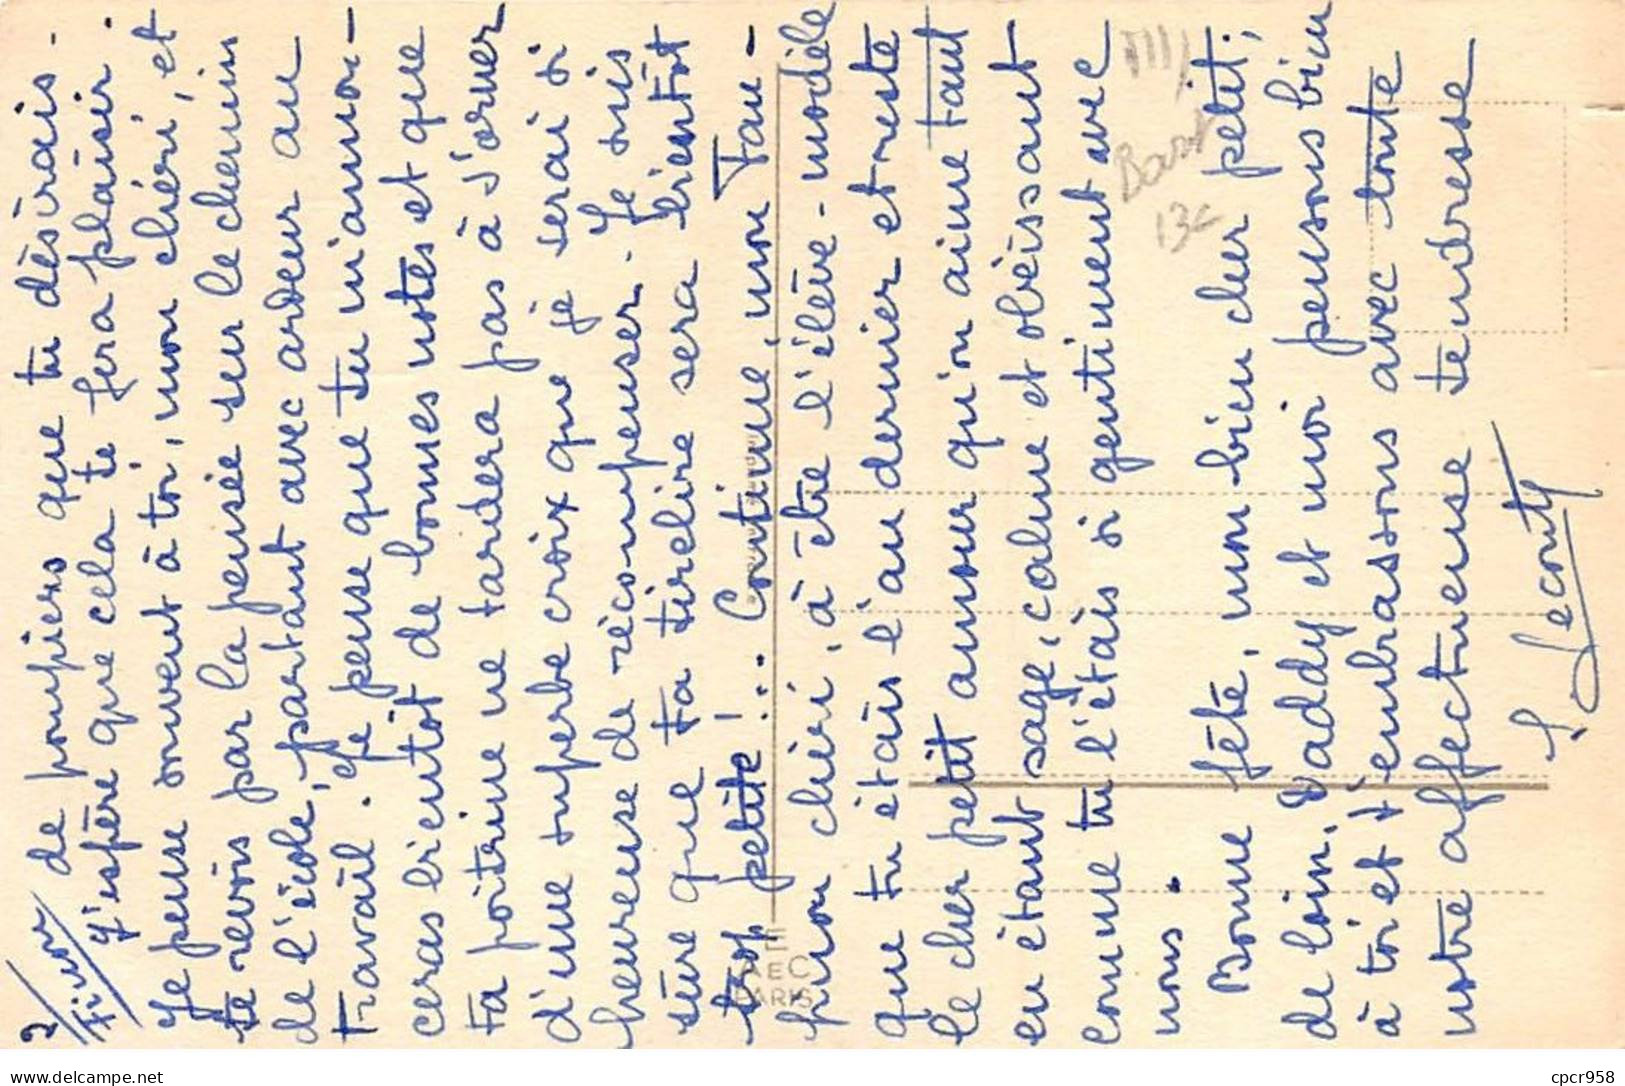 2/ de pompiers que tu désirais.
J'espère que cela te fera plaisir.
Je pense souvent à toi, mon chéri, et
te revois par la pensée sur le chemin
de l'école, partant avec ardeur au
travail. Je pense que tu m'annon-
ceras bientôt de bonnes notes et que
ta poitrine ne tardera pas à s'orner
d'une superbe croix que je serai si
heureuse de récompenser. Je suis
sûre que ta tirelire sera bientôt
trop petite!... Continue, mon Fan-
fan chéri, à être l'élève-modèle
que tu étais l'an dernier et reste
le cher petit amour qu'on aime tant
en étant sage, calme et obéissant
comme tu l'étais si gentiment avec
nous.
Bonne fête, mon bien cher petit;
de loin, Daddy et moi pensons bien
à toi et t'embrassons avec toute
notre affectueuse tendresse
S. Leconty
13c
A E C
PARIS
cpcr958